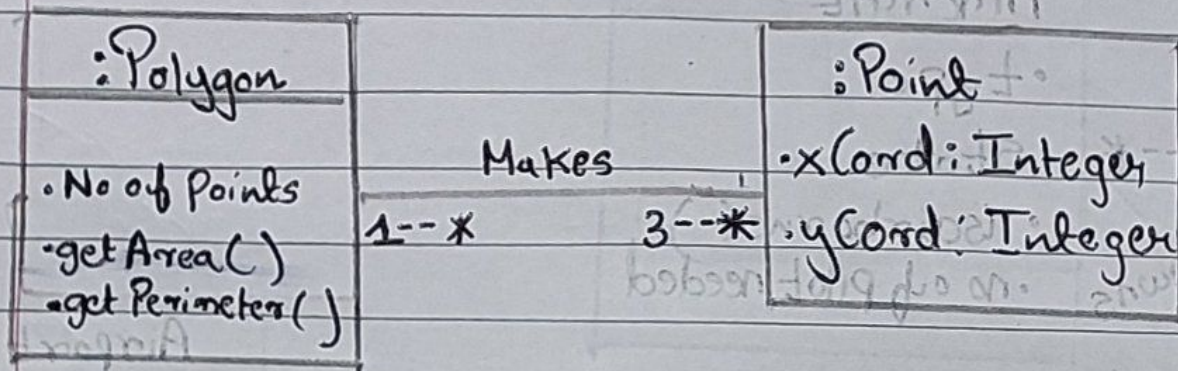 :Polygon
• No of Points
• get Area()
• get Perimeter()
Makes
1--*
3--*
:Point
• xCord: Integer
• yCord: Integer
no of plot needed